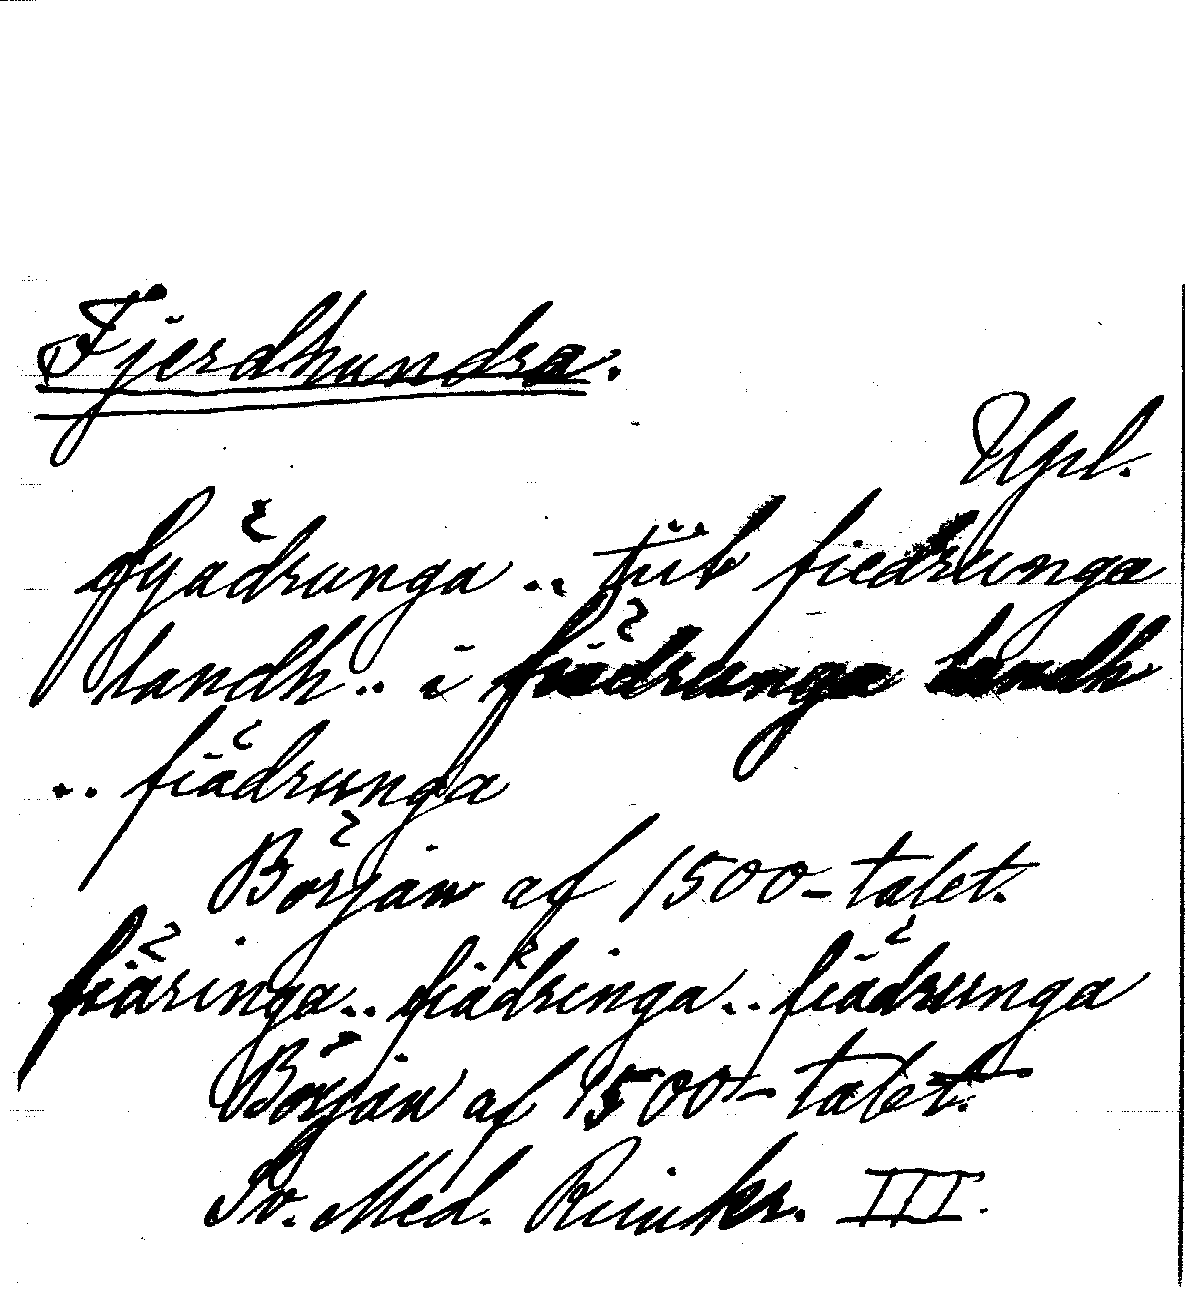 Fjerdhundra.
Upl.
fyädrunga .. tiit fiedrunga
landh .. i fiädrunga landh
.. fiädrunga
Början af 1500-talet.
fiäringa .. fiädringa .. fiädrunga
Början af 1500-talet.
Sv. Med. Rimkr. III.